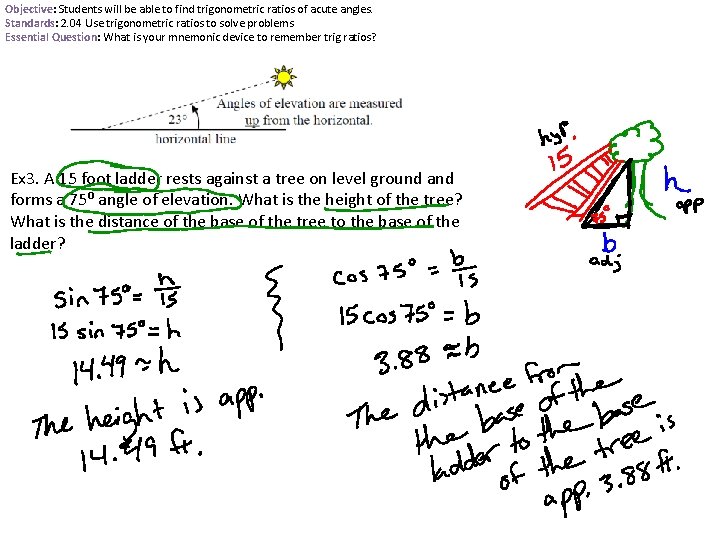 Objective: Students will be able to find trigonometric ratios of acute angles.
Standards: 2.04 Use trigonometric ratios to solve problems
Essential Question: What is your mnemonic device to remember trig ratios?
23°
Angles of elevation are measured
up from the horizontal.
horizontal line
Ex3. A 15 foot ladder rests against a tree on level ground and
forms a 75⁰ angle of elevation. What is the height of the tree?
What is the distance of the base of the tree to the base of the
ladder?
hyp.
15
75°
h
opp
b
adj
sin 75° = h/15
15 sin 75° = h
14.49 ≈ h
The height is app.
14.49 ft.
cos 75° = b/15
15 cos 75° = b
3.88 ≈ b
The distance from
the base of the
ladder to the base
of the tree is
app. 3.88 ft.